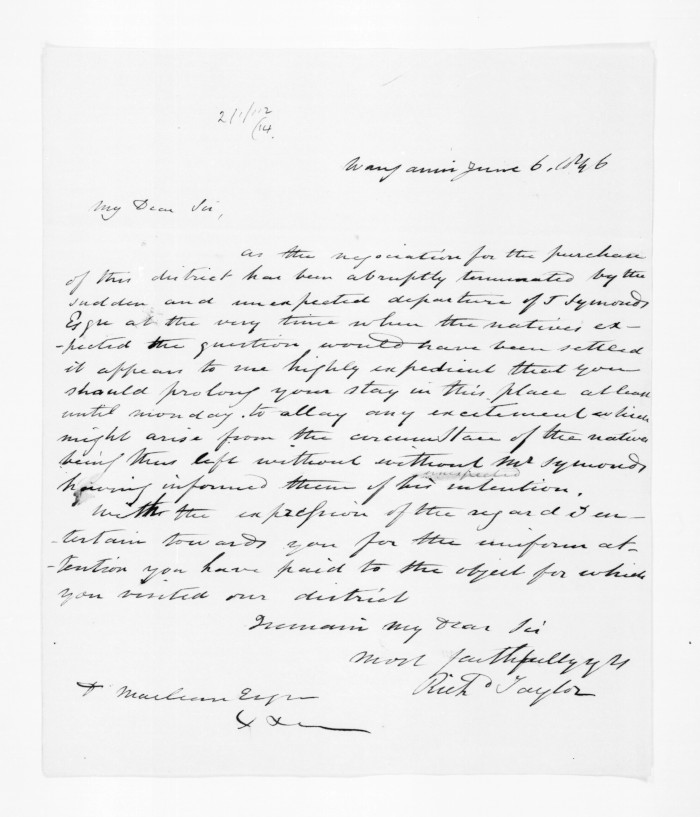 2/1/12
/14.
Wanganui June 6. 1846
My Dear Sir,
as the negociation for the purchase
of this district has been abruptly terminated by the
sudden and unexpected departure of J Symonds
Esqre at the very time when the natives ex-
-pected the question would have been settled
it appears to me highly expedient that you
should prolong your stay in this place at least
until monday. to allay any excitement which
might arise from the circumstace of the natives
being thus left without without Mr Symonds
having informed them of his intention.
With the expression of the regard I en-
-tertain towards you for the uniform at-
-tention you have paid to the object for which
you visited our district
I remain My Dear Sir
most faithfully yrs
Richd Taylor
Maclean Esqre